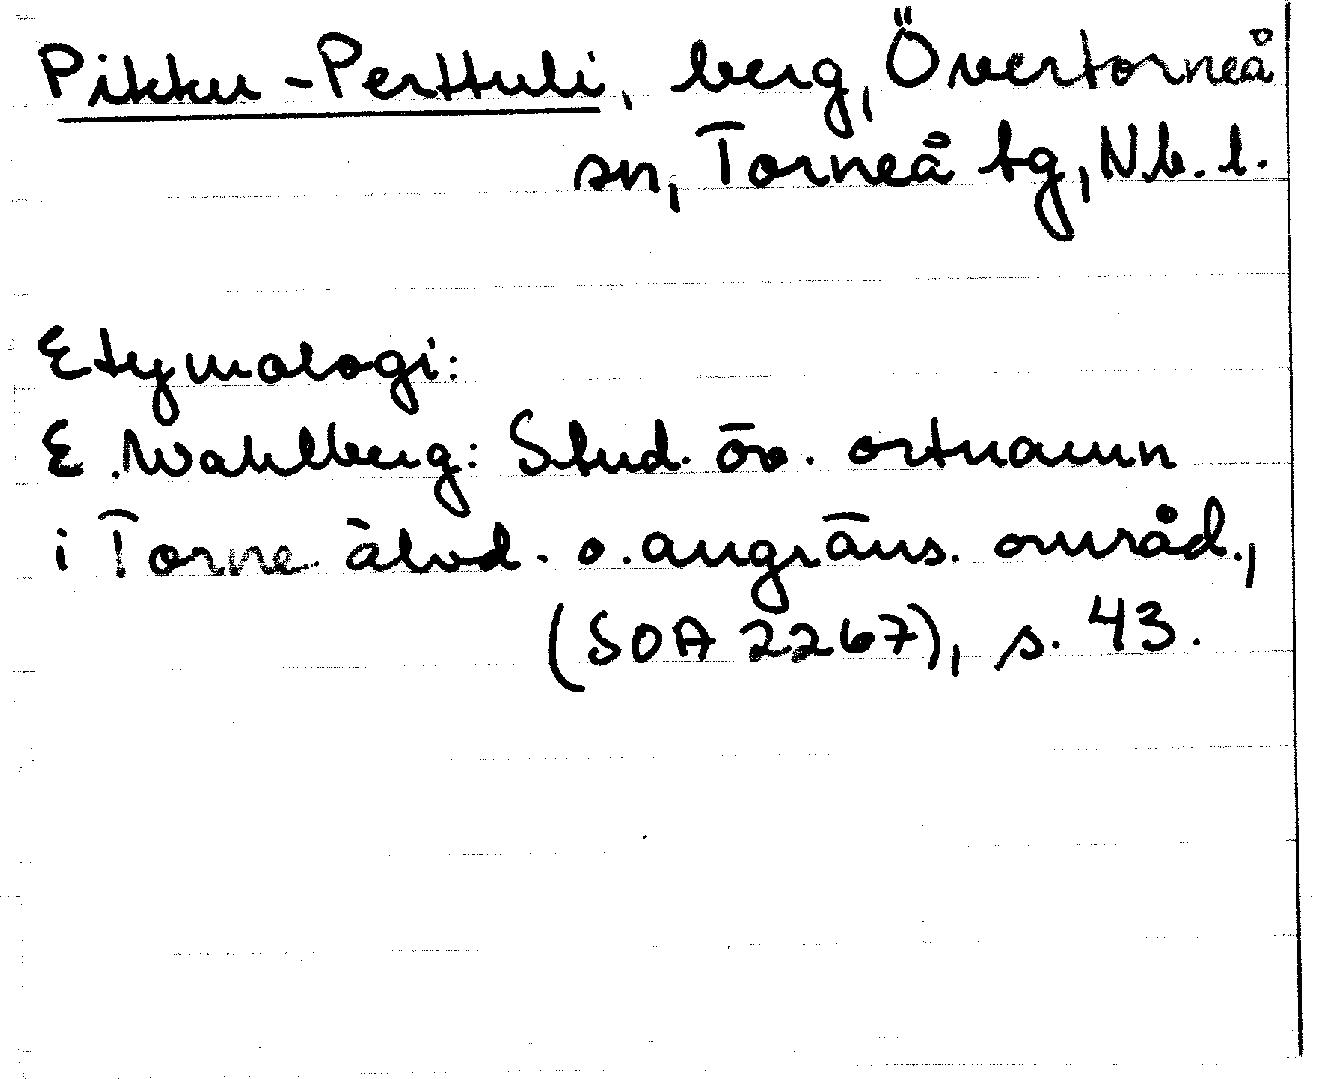 Pikku-Perttuli, berg, Övertorneå
sn, Torneå tg, Nb. l.
Etymologi:
E. Wahlberg: Stud. öv. ortnamn
i Torne älvd. o. angräns. områd.,
(SOA 2267), s. 43.